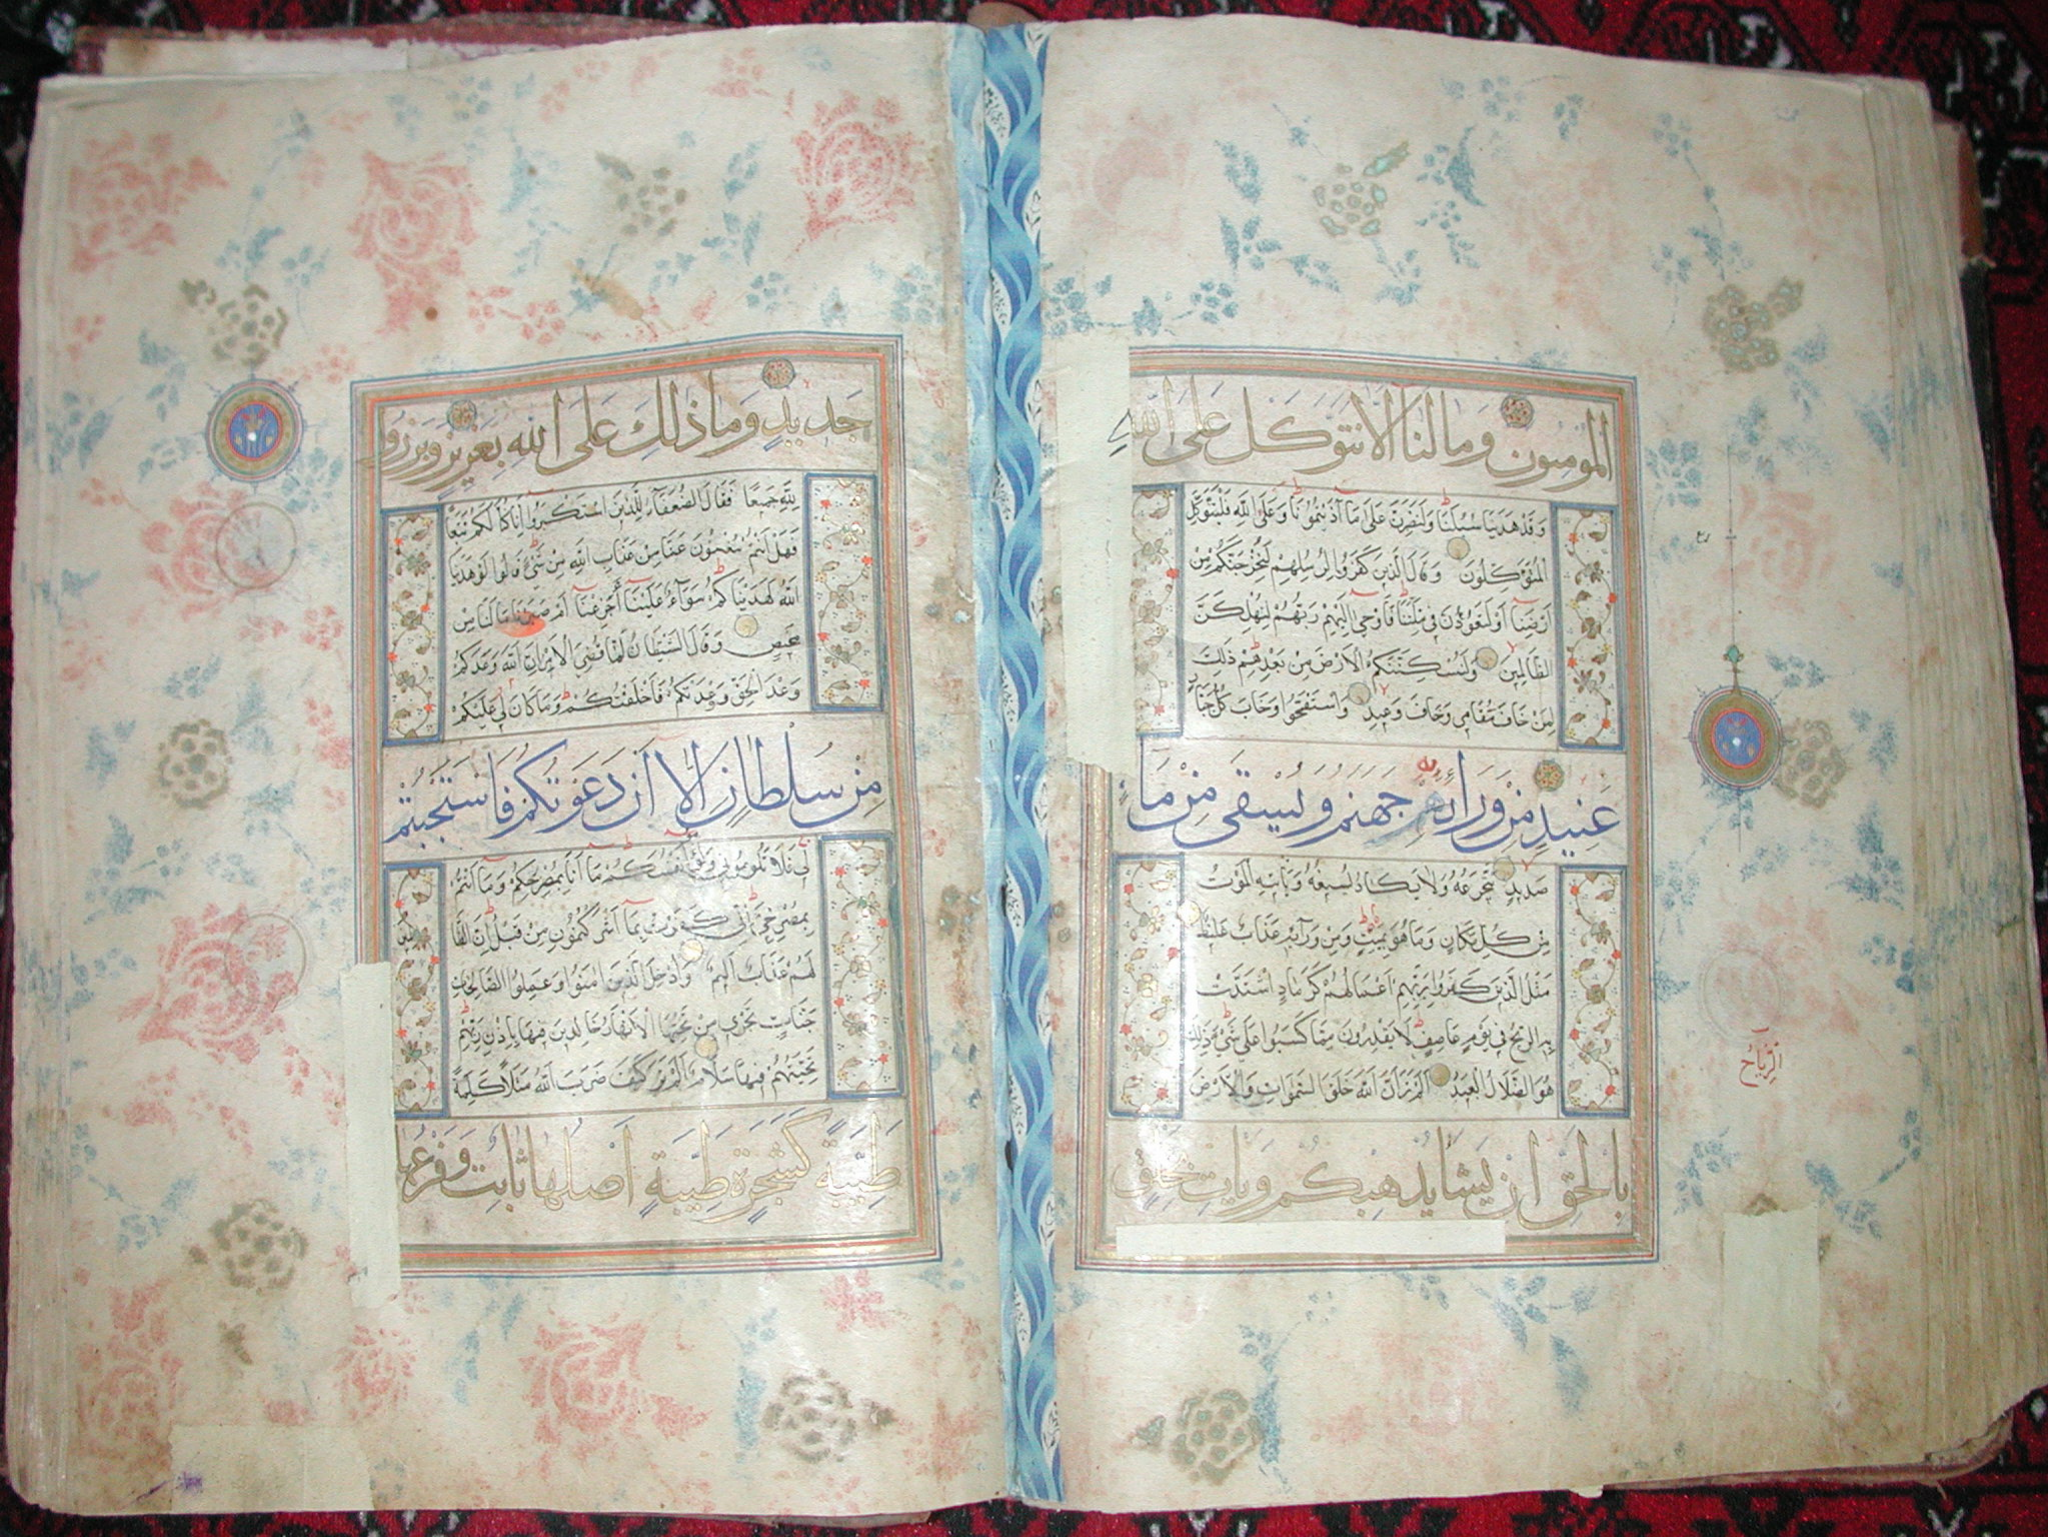 المومنون وما لنا الا نتوكل على الله
وقد هدينا سبلنا ولنصبرن على ما آذيتمونا وعلى الله فليتوكل
المتوكلون وقال الذين كفروا لرسلهم لنخرجنكم من
ارضنا او لتعودن في ملتنا فاوحى اليهم ربهم لنهلكن
الظالمين ولنسكننكم الارض من بعدهم ذلك
لمن خاف مقامي وخاف وعيد واستفتحوا وخاب كل جبار
عنيد من ورائه جهنم ويسقى من ماء
صديد يتجرعه ولا يكاد يسيغه وياتيه الموت
من كل مكان وما هو بميت ومن ورآئه عذاب غليظ
مثل الذين كفروا بربهم اعمالهم كرماد اشتدت
به الريح في يوم عاصف لا يقدرون مما كسبوا على شيء ذلك
هو الضلال البعيد الم تر ان الله خلق السموات والارض
بالحق ان يشا يذهبكم ويات بخلق
الرياح
جديد وما ذلك على الله بعزيز وبرزوا
لله جميعا فقال الضعفآء للذين استكبروا انا كنا لكم تبعا
فهل انتم مغنون عنا من عذاب الله من شيء قالوا لو هدينا
الله لهديناكم سوآء علينآ اجزعنآ ام صبرنا ما لنا من
محيص وقال الشيطان لما قضي الامر ان الله وعدكم
وعد الحق ووعدتكم فاخلفتكم وما كان لي عليكم
من سلطان الا ان دعوتكم فاستجبتم
لي فلا تلوموني ولوموا انفسكم ما انا بمصرخكم وما انتم
بمصرخي اني كفرت بمآ اشركتمون من قبل ان الظالمين
لهم عذاب اليم وادخل الذين امنوا وعملوا الصالحات
جنات تجري من تحتها الانهار خالدين فيها باذن ربهم
تحيتهم فيها سلام الم تر كيف ضرب الله مثلا كلمة
طيبة كشجرة طيبة اصلها ثابت وفرعها